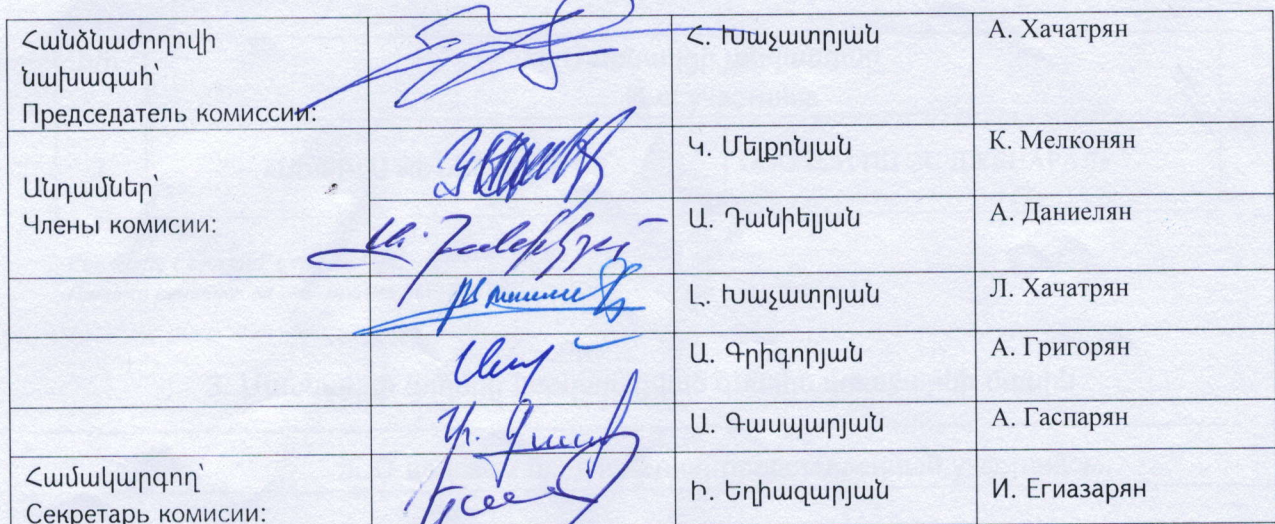 Հանձնաժողովի
նախագահ՝
Председатель комиссии:
Հ. Խաչատրյան
А. Хачатрян
Անդամներ՝
Члены комисии:
Կ. Մելքոնյան
К. Мелконян
Ա. Դանիելյան
А. Даниелян
Լ. Խաչատրյան
Л. Хачатрян
Ա. Գրիգորյան
А. Григорян
Ա. Գասպարյան
А. Гаспарян
Համակարգող՝
Секретарь комисии:
Ի. Եղիազարյան
И. Егиазарян